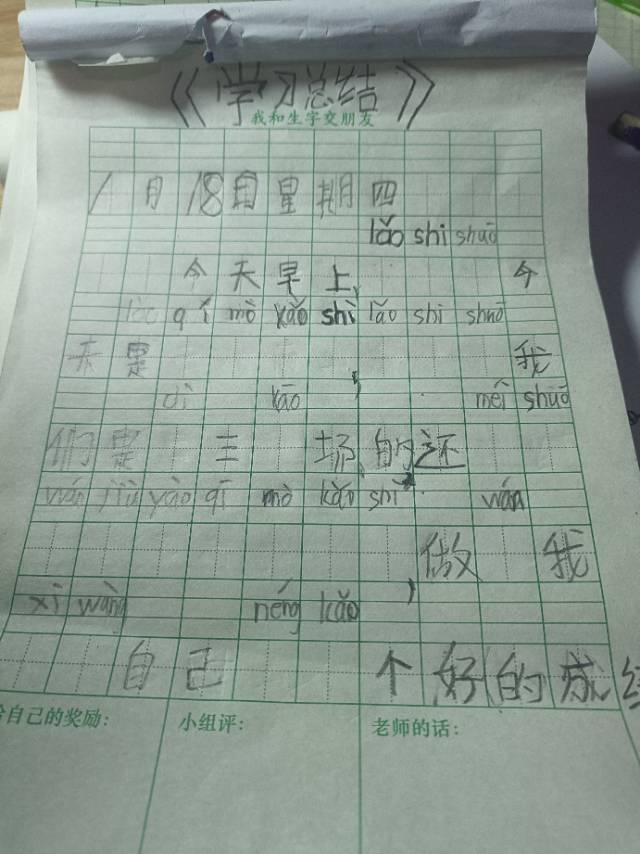 《学习总结》
我和生字交朋友
1月18日星期四
lǎo shi shuō
今天早上, 今
qī mò kǎo shì lǎo shi shuō
天是 我
dì kǎo méi shuō
们是 三 场,的还
wán jiù yào qī mò kǎo shì wán
做 我
xī wàng néng kǎo
自己 个好的成
给自己的奖励:
小组评:
老师的话: